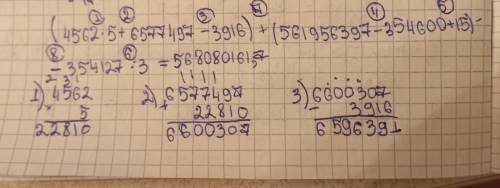 ① ② ③ ⑦ ④ ⑤
(4562·5+6577497−3916)+(561956397−354600+15)−
⑧ ⑥
−354127:3=
1) 4562 2) 6577497 3) 6600307
× 5 + 22810 − 3916
22810 6600307 6596391